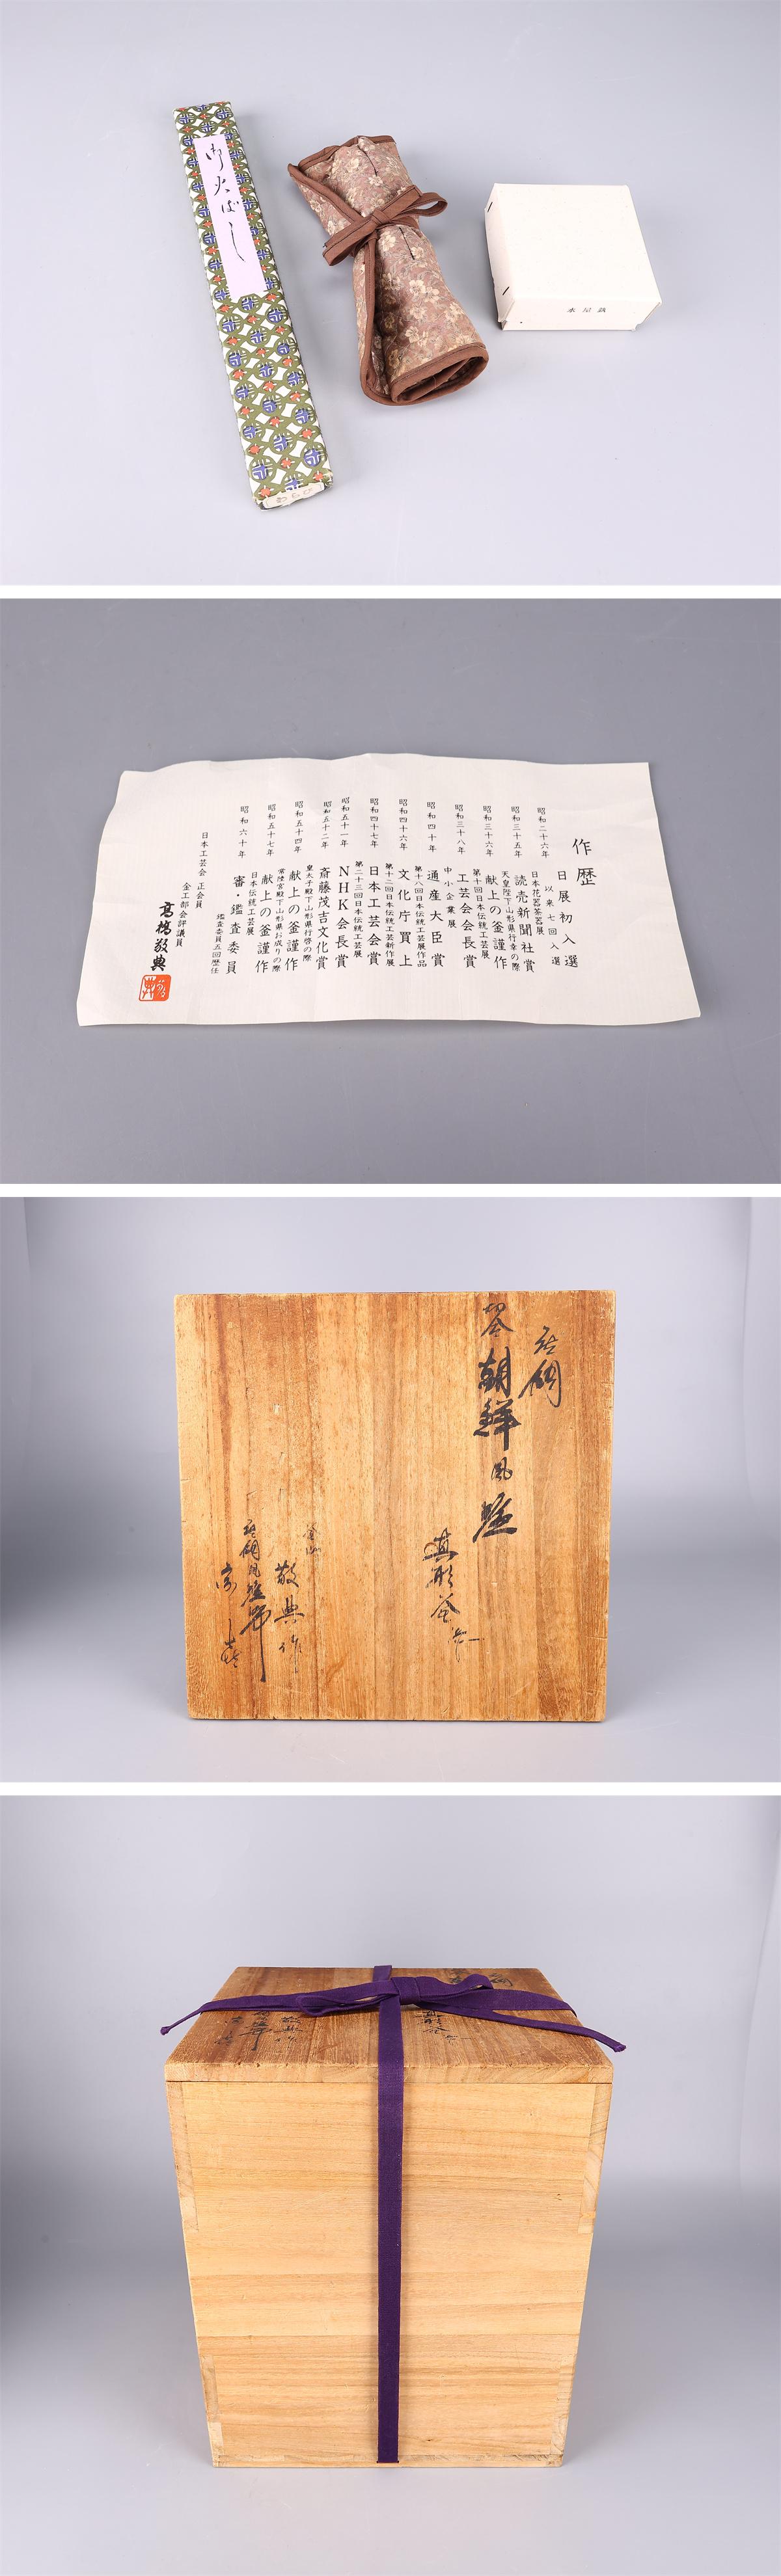 御火ばし
水屋鋏
作歴
昭和二十六年 日展初入選
以来七回入選
日本花器茶器展
昭和三十五年 読売新聞社賞
天皇陛下山形県行幸の際
昭和三十六年 献上の釜謹作
第十回日本伝統工芸展
昭和三十八年 工芸会会長賞
中小企業展
昭和四十年 通産大臣賞
第十八回日本伝統工芸展作品
昭和四十六年 文化庁買上
第十二回日本伝統工芸新作展
昭和四十七年 日本工芸会賞
第二十三回日本伝統工芸展
昭和五十一年 NHK会長賞
昭和五十二年 斎藤茂吉文化賞
皇太子殿下山形県行啓の際
昭和五十四年 献上の釜謹作
常陸宮殿下山形県お成りの際
昭和五十七年 献上の釜謹作
日本伝統工芸展
昭和六十年 審・鑑査委員
鑑査委員五回歴任
日本工芸会 正会員
金工部会評議員
高橋敬典
唐銅
切合 朝鮮風炉
真形釜
敬典作
唐銅風炉師